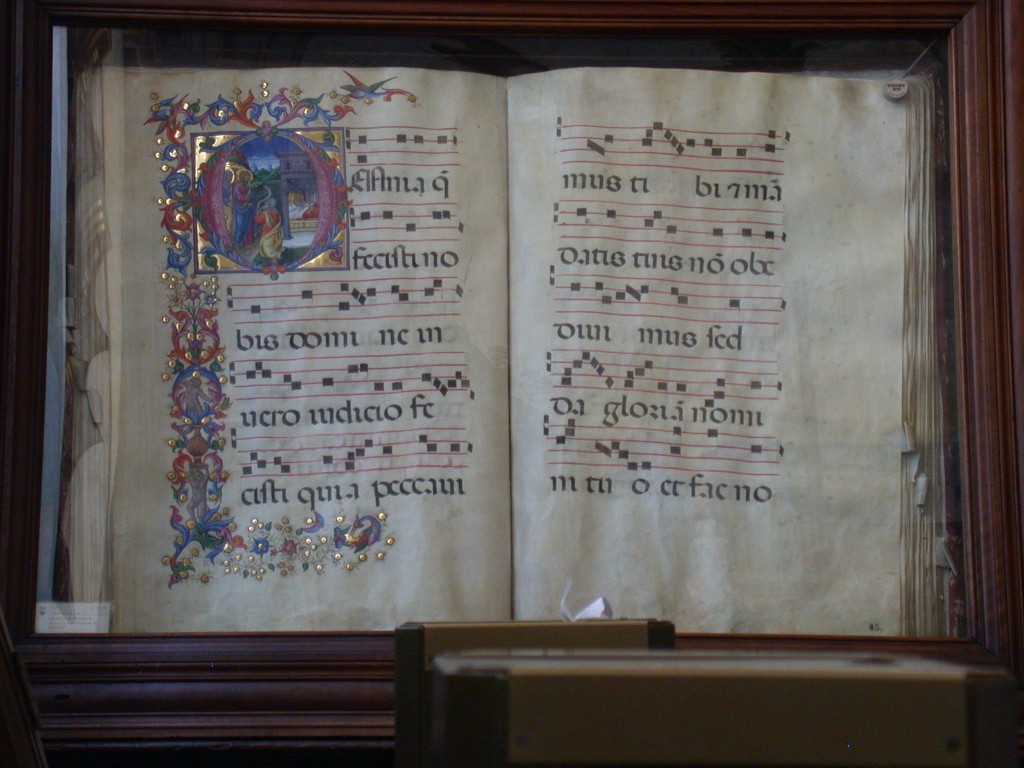 OMnia q̄
fecisti no
bis domi ne in
uero iudicio fe
cisti quia peccaui
mus ti bi ⁊ mā
datis tuis nō obe
diui mus sed
da gloriā nomi
ni tu o et fac no
45.